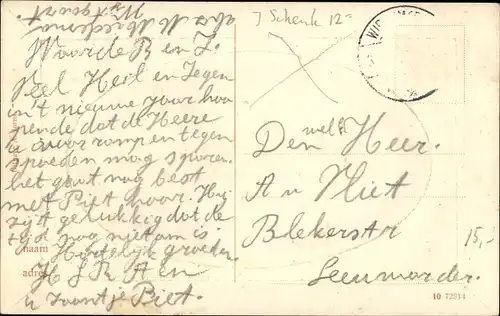 Waarde B en Z.
Veel Heil en Zegen
in't nieuwe Jaar hoo
pende dat de Heere
u voor ramp en tegen
spoeden mag sparen.
het gaat nog best
met Piet hoor. Hij
zijt gelukkig dat de
tijd nog niet om is.
Hartelijk groeten.
H A en
u zoontje Piet.
naam
adres
J Schenk 12
Den welE Heer.
A v Vliet
Blekerstr
Leeuwarden.
15,-
10 72914